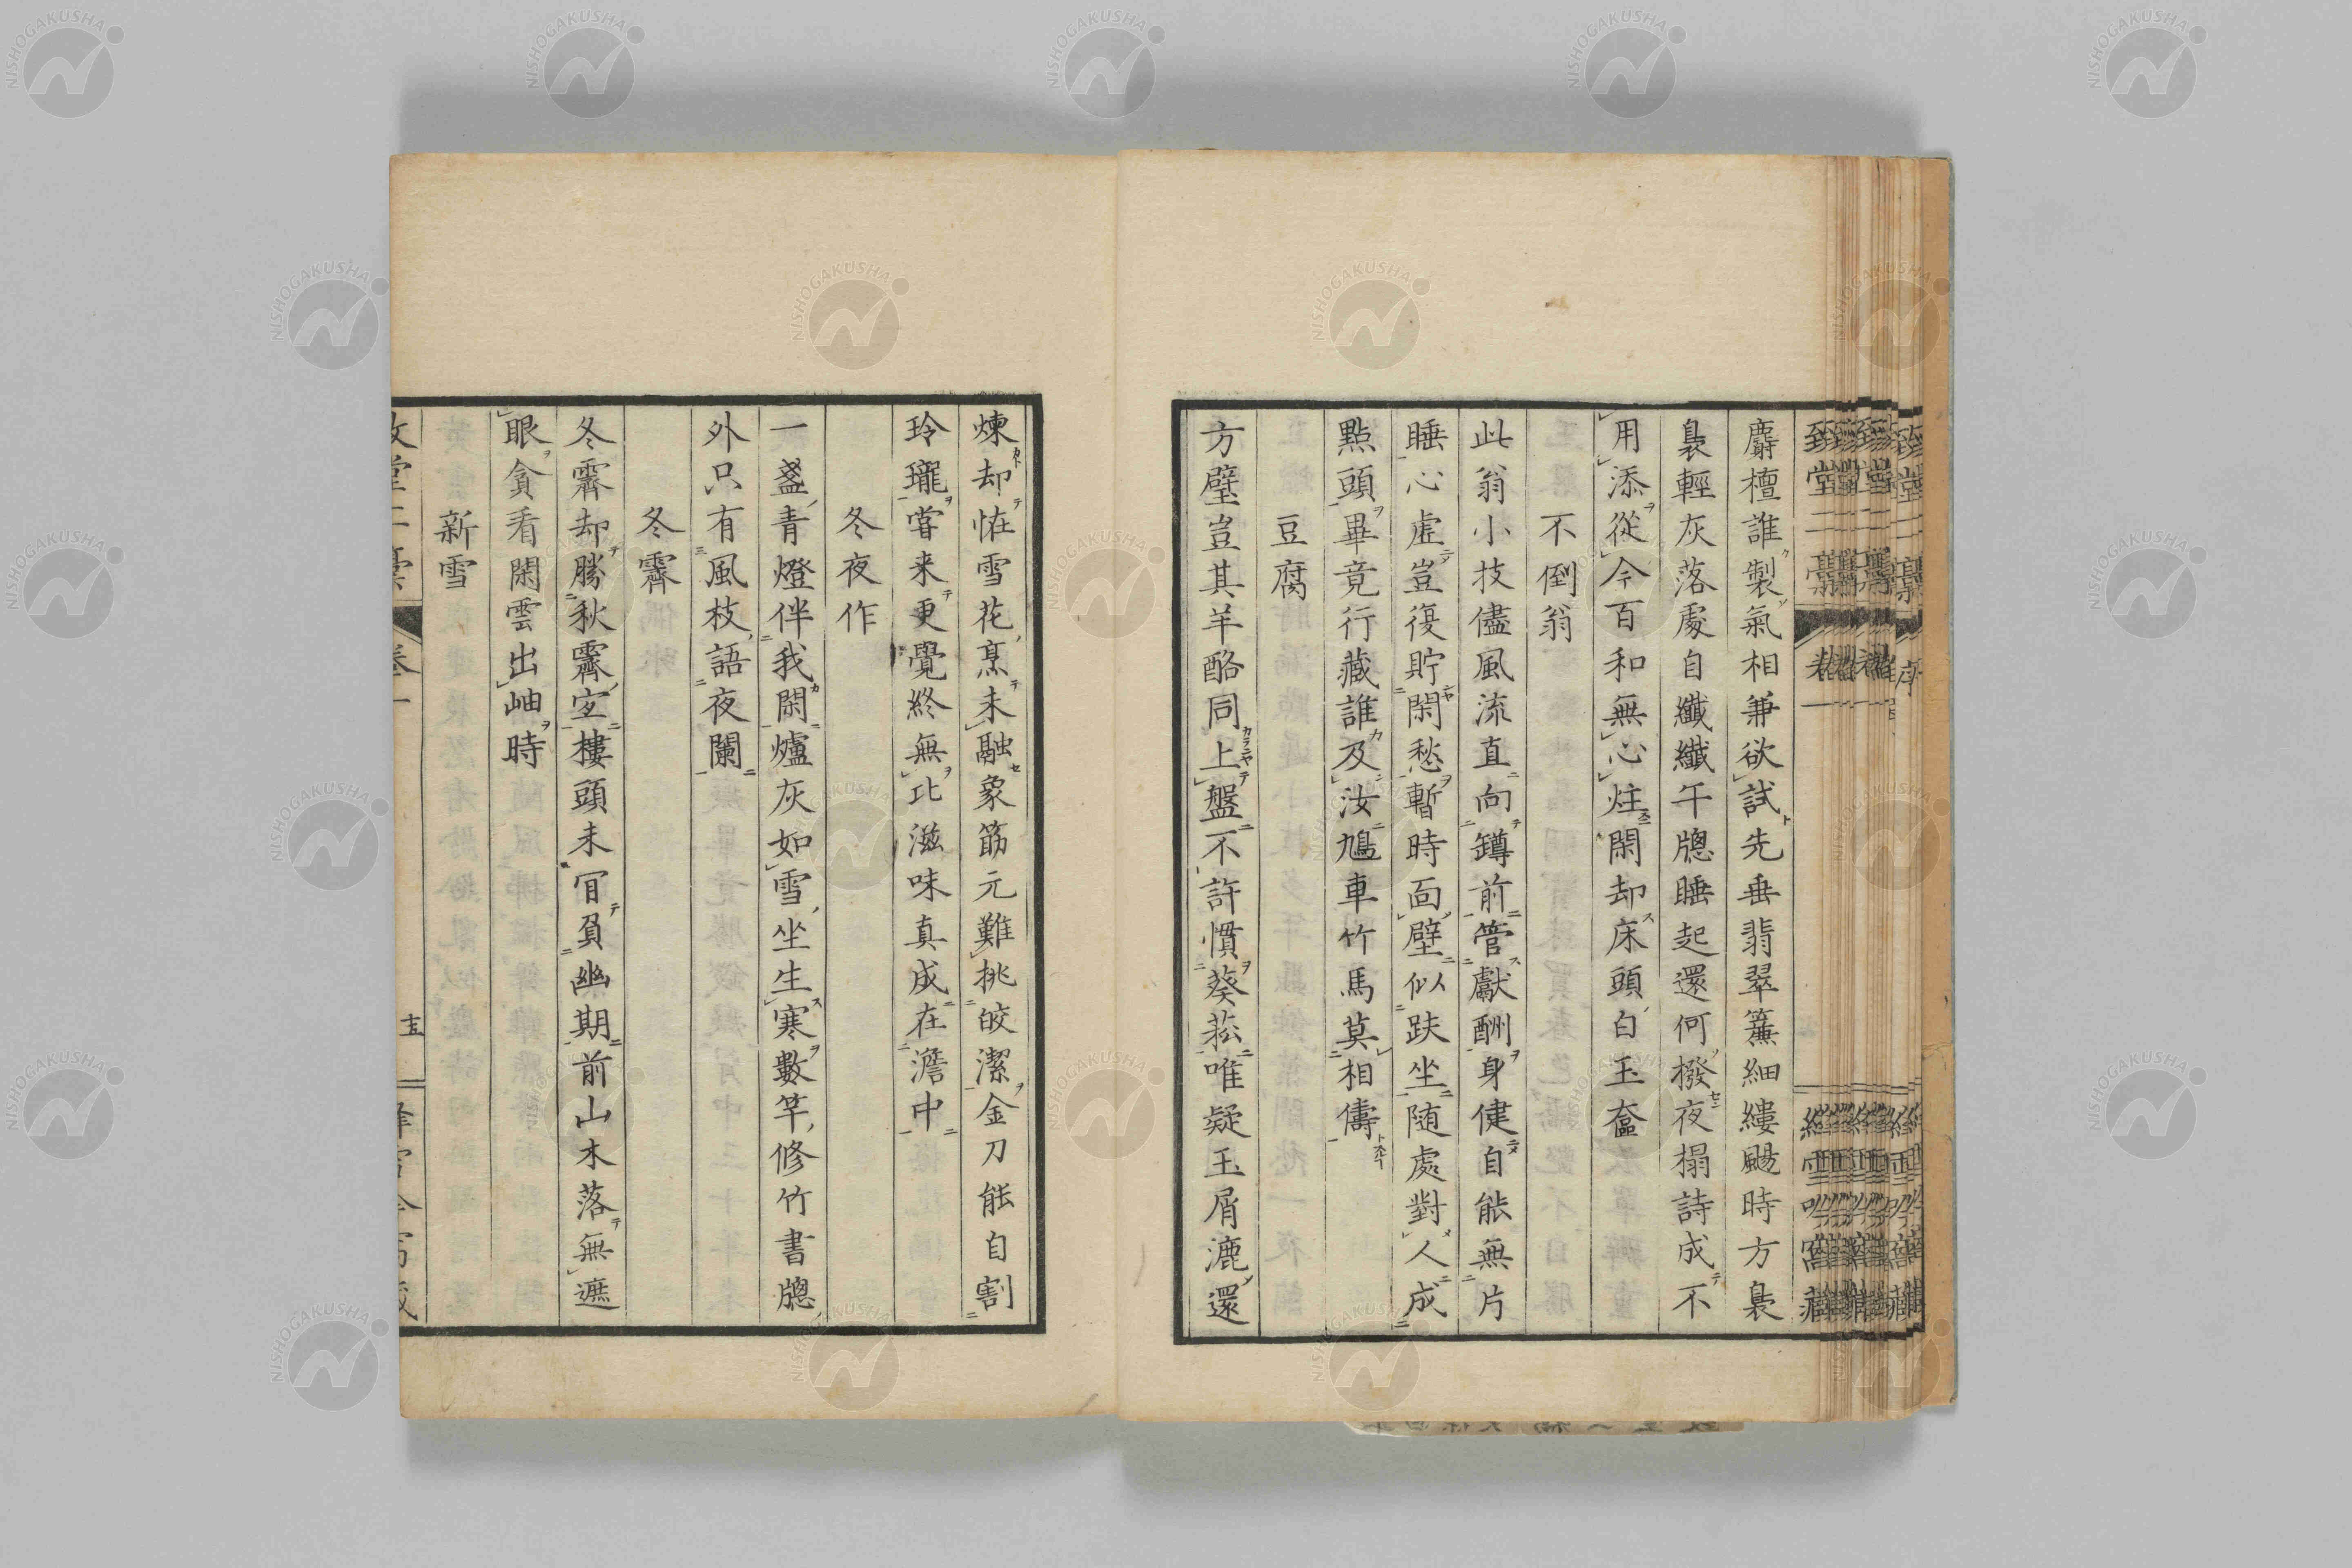 麝檀誰製氣相兼欲試先垂翡翠簾細縷颺時方裊
裊輕灰落處自纖纖午牕睡起還何撥夜榻詩成不
用添從今百和無心炷閑却床頭白玉奩
不倒翁
此翁小技儘風流直向罇前管獻酬身健自能無片
睡心虛豈復貯閑愁暫時面壁似趺坐随處對人成
點頭畢竟行藏誰及汝鳩車竹馬莫相儔
豆腐
方璧豈其羊酪同上盤不許慣葵菘唯疑玉屑漉還
煉却恠雪花烹未融象筯元難挑皎潔金刀能自割
玲瓏嘗来更覺終無比滋味真成在澹中
冬夜作
一盞青燈伴我閑爐灰如雪坐生寒數竿修竹書牕
外只有風枝語夜闌
冬霽
冬霽却勝秋霽宜樓頭未肎負幽期前山木落無遮
眼貪看閑雲出岫時
新雪
十五
NISHOGAKUSHA